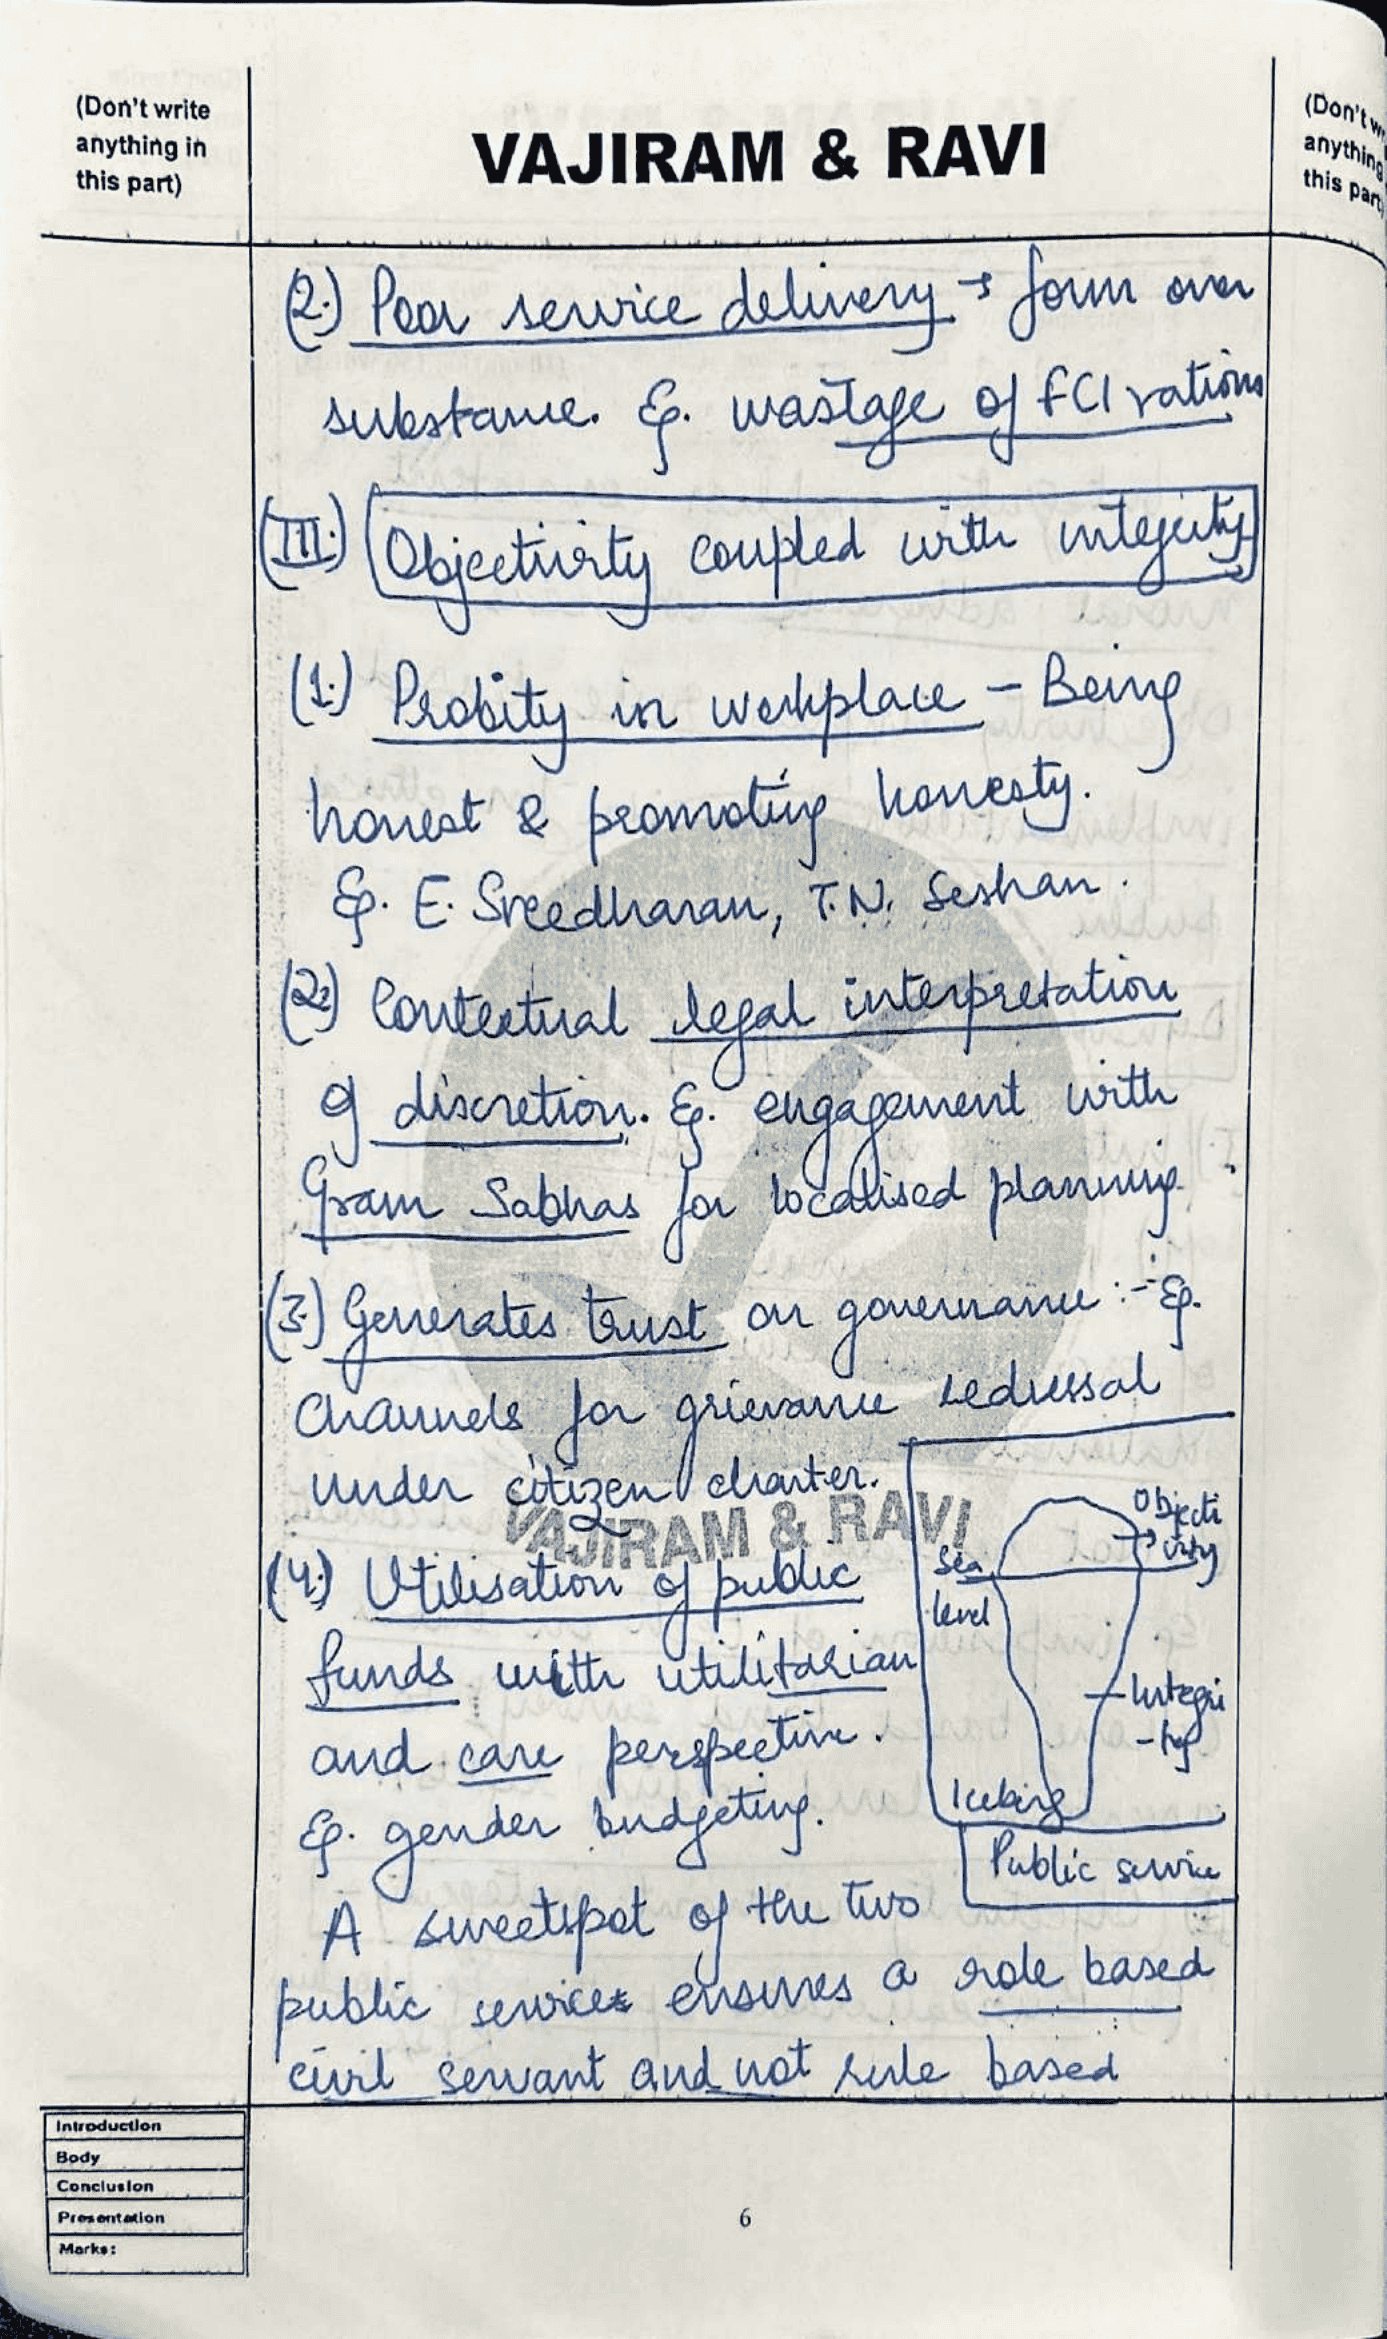 (Don't write
anything in
this part)
VAJIRAM & RAVI
(Don't w
anything
this part)
(2.) Poor service delivery → form over
substance. Eg. wastage of FCI rations
(III.) Objectivity coupled with integrity
(1.) Probity in workplace - Being
honest & promoting honesty.
Eg. E. Sreedharan, T.N. Seshan.
(2.) Contextual legal interpretation
of discretion. Eg. engagement with
Gram Sabhas for localised planning.
(3.) Generates trust on governance :- Eg.
channels for grievance redressal
under citizen charter.
VAJIRAM & RAVI
(4.) Utilisation of public
funds with utilitarian
and care perspective.
Eg. gender budgeting.
Objecti
vity
Sea
level
Integri
-ty
Iceberg
Public service
A sweetspot of the two
public services ensures a role based
civil servant and not rule based
Introduction
Body
Conclusion
Presentation
Marks:
6